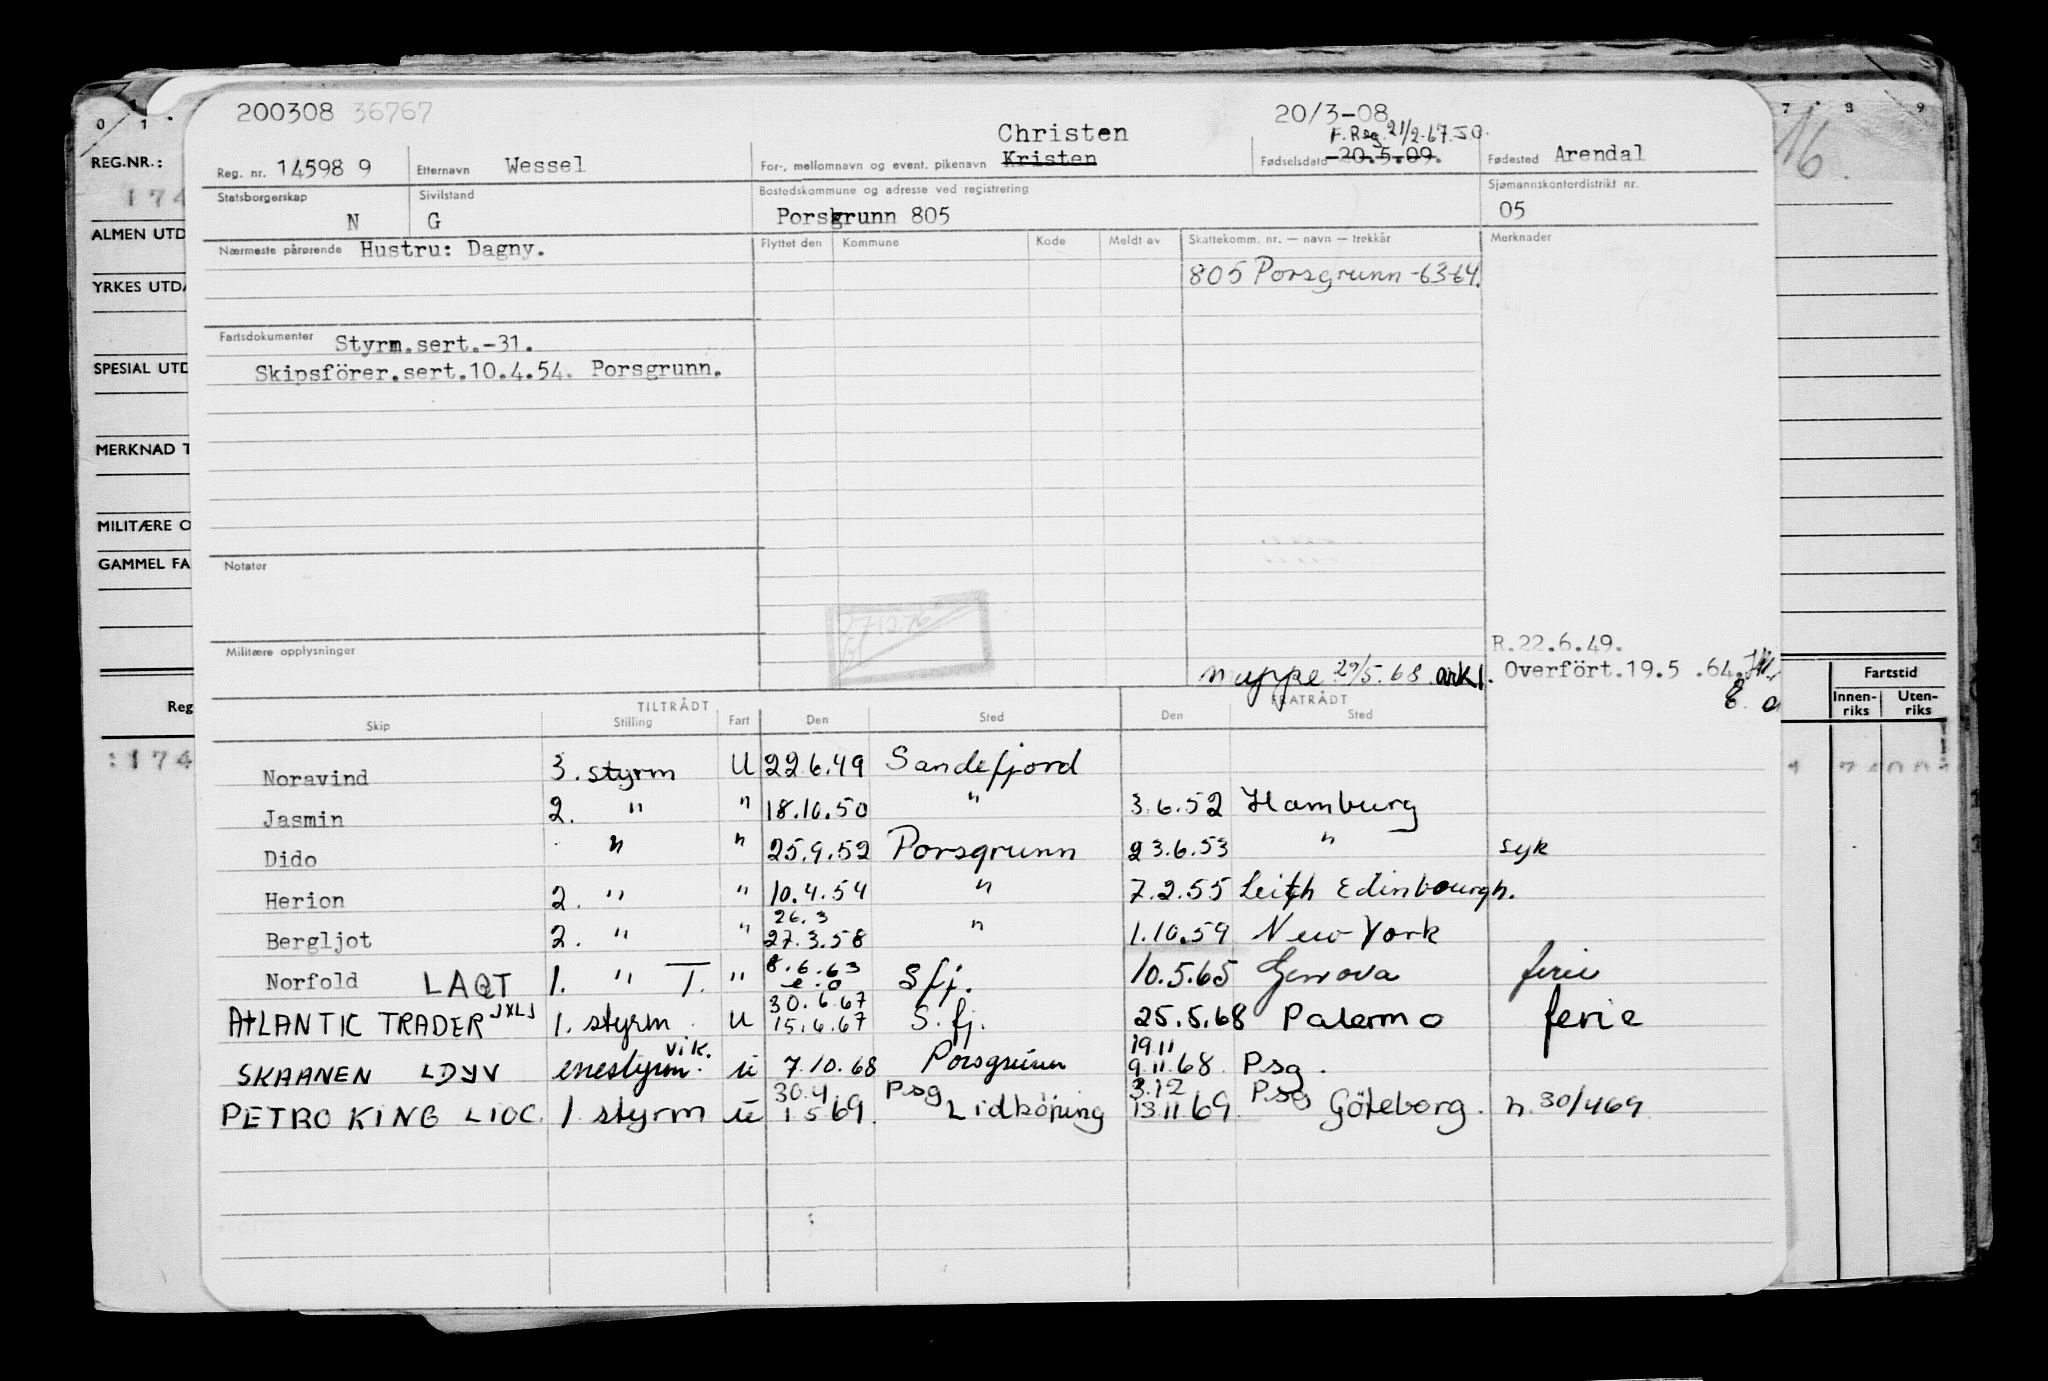 200308 36767
20/3-08
Christen
F. Reg 21/2-67
Reg. nr. 14598 9 Etternavn Wessel For-, mellomnavn og event. pikenavn Kristen Fødselsdato -20.5.09. Fødested Arendal
Statsborgerskap N Sivilstand G Bostedskommune og adresse ved registrering Porsgrunn 805 Sjømannskontordistrikt nr. 05
Nærmeste pårørende Hustru: Dagny. Flyttet den Kommune Kode Meldt av Skattekomm. nr. — navn — trekkår Merknader
805 Porsgrunn -63-64.
Fartsdokumenter Styrm.sert.-31.
Skipsförer.sert.10.4.54. Porsgrunn.
Notater
Militære opplysninger
R.22.6.49.
muppe 29/5.68 arkl. Overfört.19.5 .64.
TILTRÅDT FRATRÅDT
Skip Stilling Fart Den Sted Den Sted
Noravind 3. styrm U 22.6.49 Sandefjord
Jasmin 2. " " 18.10.50 " 3.6.52 Hamburg
Dido " " 25.9.52 Porsgrunn 23.6.53 " syk
Herion 2. " " 10.4.54 " 7.2.55 Leith Edinbourgh.
26.3
Bergljot 2. " " 27.3.58 " 1.10.59 New York
Norfold LAQT 1. " T. " 8.6.63 S fj. 10.5.65 Genova ferie
30.6.67
ATLANTIC TRADER JXLJ 1. styrm U 15.6.67 S.fj. 25.5.68 Palermo ferie
19.11
SKAANEN LDYV enestyrm. vik. u 7.10.68 Porsgrunn 9.11.68. Psg.
30.4 Psg 3.12 Psg
PETRO KING LIOC. 1. styrm u 1.5 69. Lidköping 13.11 69. Göteborg. n. 30/4 69
REG.NR.:
174
ALMEN UTD
YRKES UTDA
SPESIAL UTD
MERKNAD T
MILITÆRE O
GAMMEL FA
Reg
:174
16.
Fartstid
Innen-riks Uten-riks